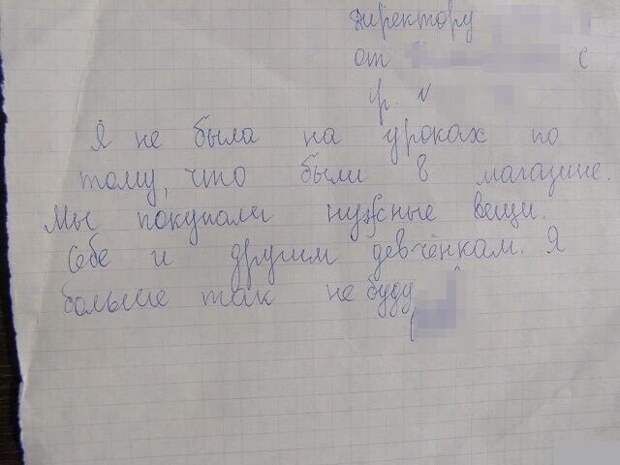 директору
от с
Я не была на уроках по
тому, что были в магазине.
Мы покупали нужные вещи.
Себе и другим девчёнкам. Я
больше так не буду